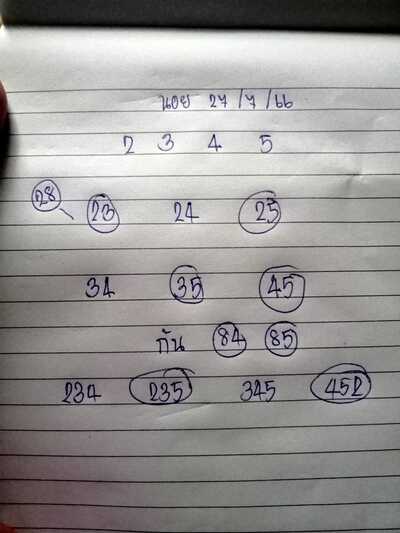 นอย 27/7/66
2 3 4 5
28
23 24 25
34 35 45
กัน 84 85
234 235 345 452